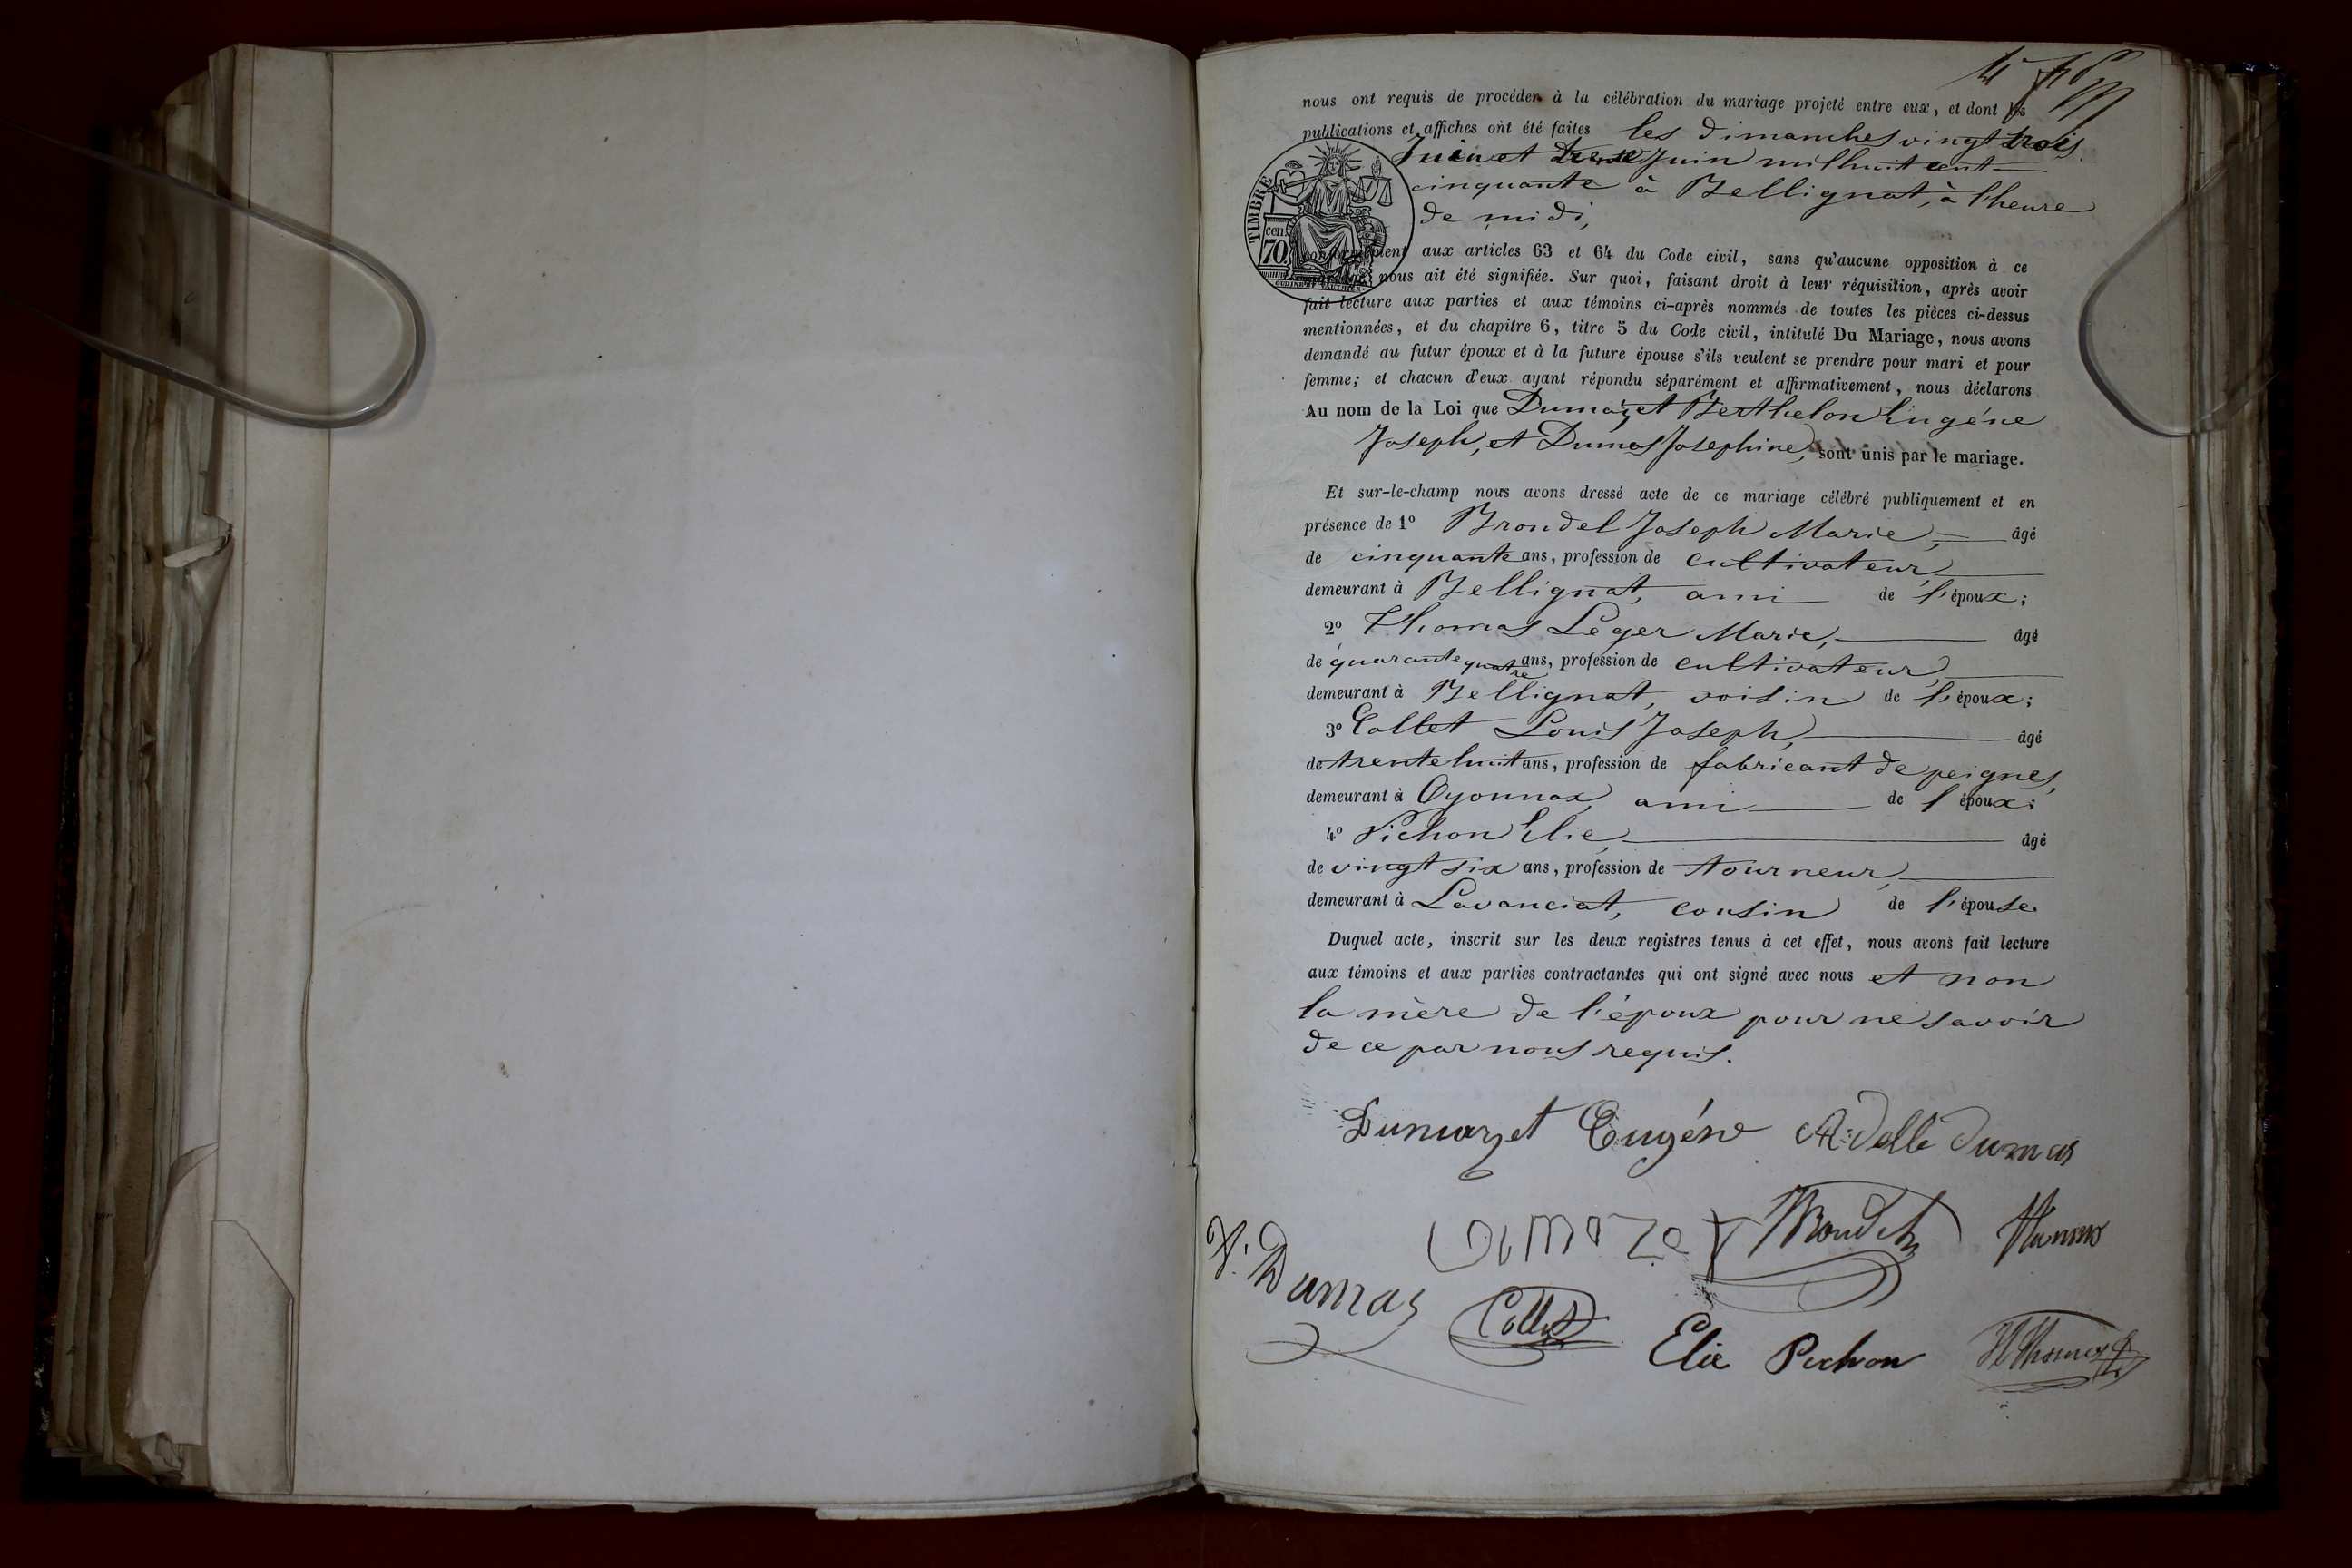 nous ont requis de procéder à la célébration du mariage projeté entre eux, et dont les
publications et affiches ont été faites les dimanches vingt trois
Juin et trente Juin mil huit cent
cinquante à Bellignat, à l'heure
de midi,
TIMBRE
cen.
70
conformément aux articles 63 et 64 du Code civil, sans qu'aucune opposition à ce
mariage nous ait été signifiée. Sur quoi, faisant droit à leur réquisition, après avoir
fait lecture aux parties et aux témoins ci-après nommés de toutes les pièces ci-dessus
mentionnées, et du chapitre 6, titre 5 du Code civil, intitulé Du Mariage, nous avons
demandé au futur époux et à la future épouse s'ils veulent se prendre pour mari et pour
femme; et chacun d'eux ayant répondu séparément et affirmativement, nous déclarons
Au nom de la Loi que Dumazet Berthelon Eugéne
Joseph, et Dumas Josephine, sont unis par le mariage.
Et sur-le-champ nous avons dressé acte de ce mariage célébré publiquement et en
présence de 1º Brondel Joseph Marie, âgé
de cinquante ans, profession de cultivateur,
demeurant à Bellignat, ami de l'époux;
2º Thomas Léger Marie, âgé
de quarante quatre ans, profession de cultivateur,
demeurant à Bellignat, voisin de l'époux;
3º Collet Louis Joseph, âgé
de trente huit ans, profession de fabricant de peignes,
demeurant à Oyonnax, ami de l'époux;
4º Pichon Elie, âgé
de vingt six ans, profession de tourneur,
demeurant à Lavanciat, cousin de l'épouse
Duquel acte, inscrit sur les deux registres tenus à cet effet, nous avons fait lecture
aux témoins et aux parties contractantes qui ont signé avec nous et non
la mère de l'époux pour ne savoir
de ce par nous requis.
Dumazet Eugéne Adelle Dumas
Dumazet Brondel
J. Dumas Collet Elie Pichon Thomas